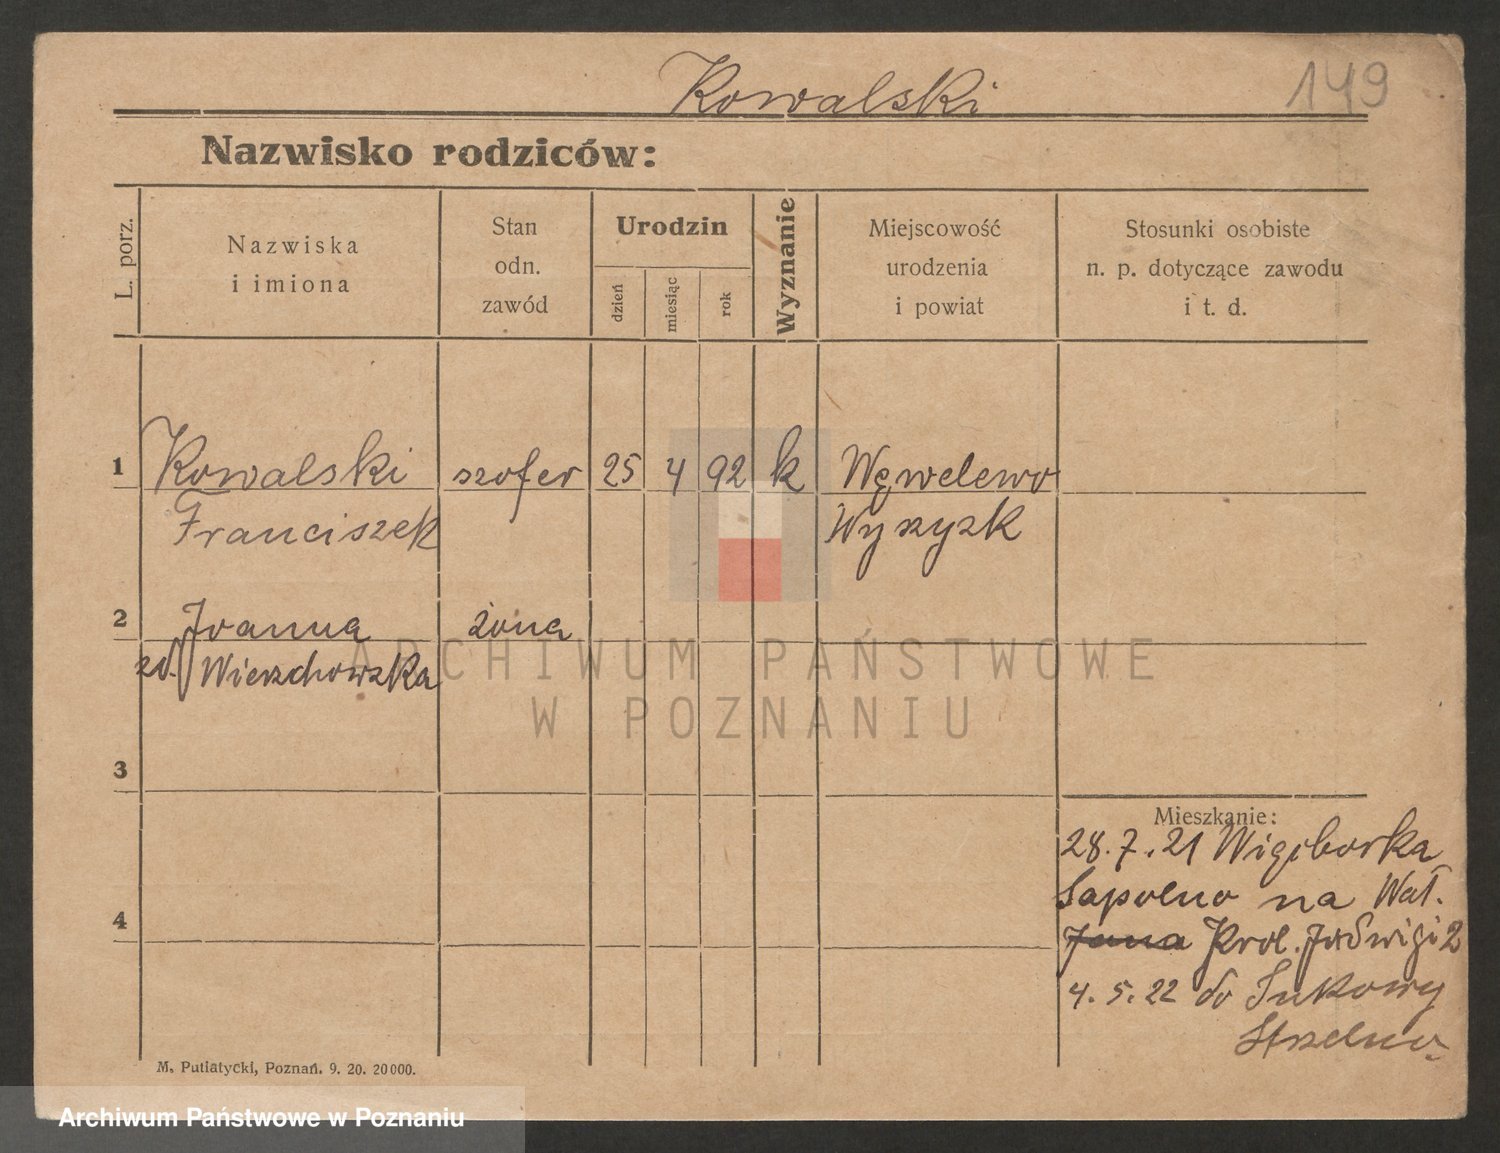 Kowalski
149
Nazwisko rodziców:
L. porz.
Nazwiska
i imiona
Stan
odn.
zawód
Urodzin
dzień
miesiąc
rok
Wyznanie
Miejscowość
urodzenia
i powiat
Stosunki osobiste
n. p. dotyczące zawodu
i t. d.
1 Kowalski szofer 25 4 92 k Węwelewo
Franciszek Wyrzysk
2 Joanna żona
zd. Wierzchowska
ARCHIWUM PAŃSTWOWE
W POZNANIU
3
Mieszkanie:
28.7.21 Więcborka
Sapolno na Wał.
4
Jana Król. Jadwigi 2
4.5.22 do Sukowy
Strzelno
M. Putiatycki, Poznań. 9. 20. 20000.
Archiwum Państwowe w Poznaniu